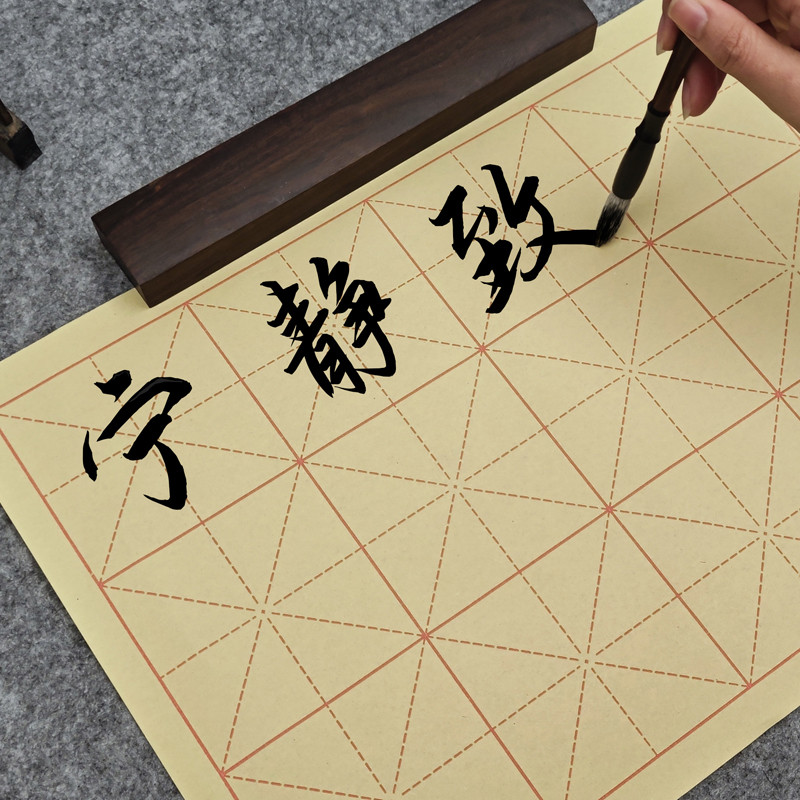 宁静致